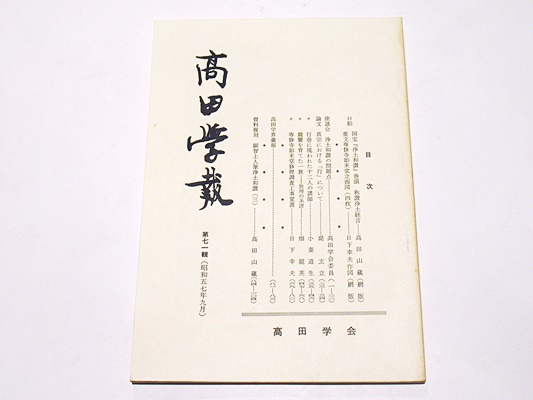 高田学報
第七一輯（昭和五七年九月）
目次
口絵 国宝『浄土和讃』巻頭 称讃浄土経言 高田山蔵（網版）
重文専修寺如来堂立面図（四枚） 日下幸夫作図（網版）
座談会 浄土和讃の問題点 高田学会委員
論文 真宗における「行」について 堤玄立
〃 行巻に現われた十二人の諸師 小妻道生
〃 親鸞を育てた一族 畑龍英
〃 専修寺如来堂修理調査工事覚書 日下幸夫
高田学界彙報
資料復刻 顕智上人筆浄土和讃（三） 高田山蔵
高田学会